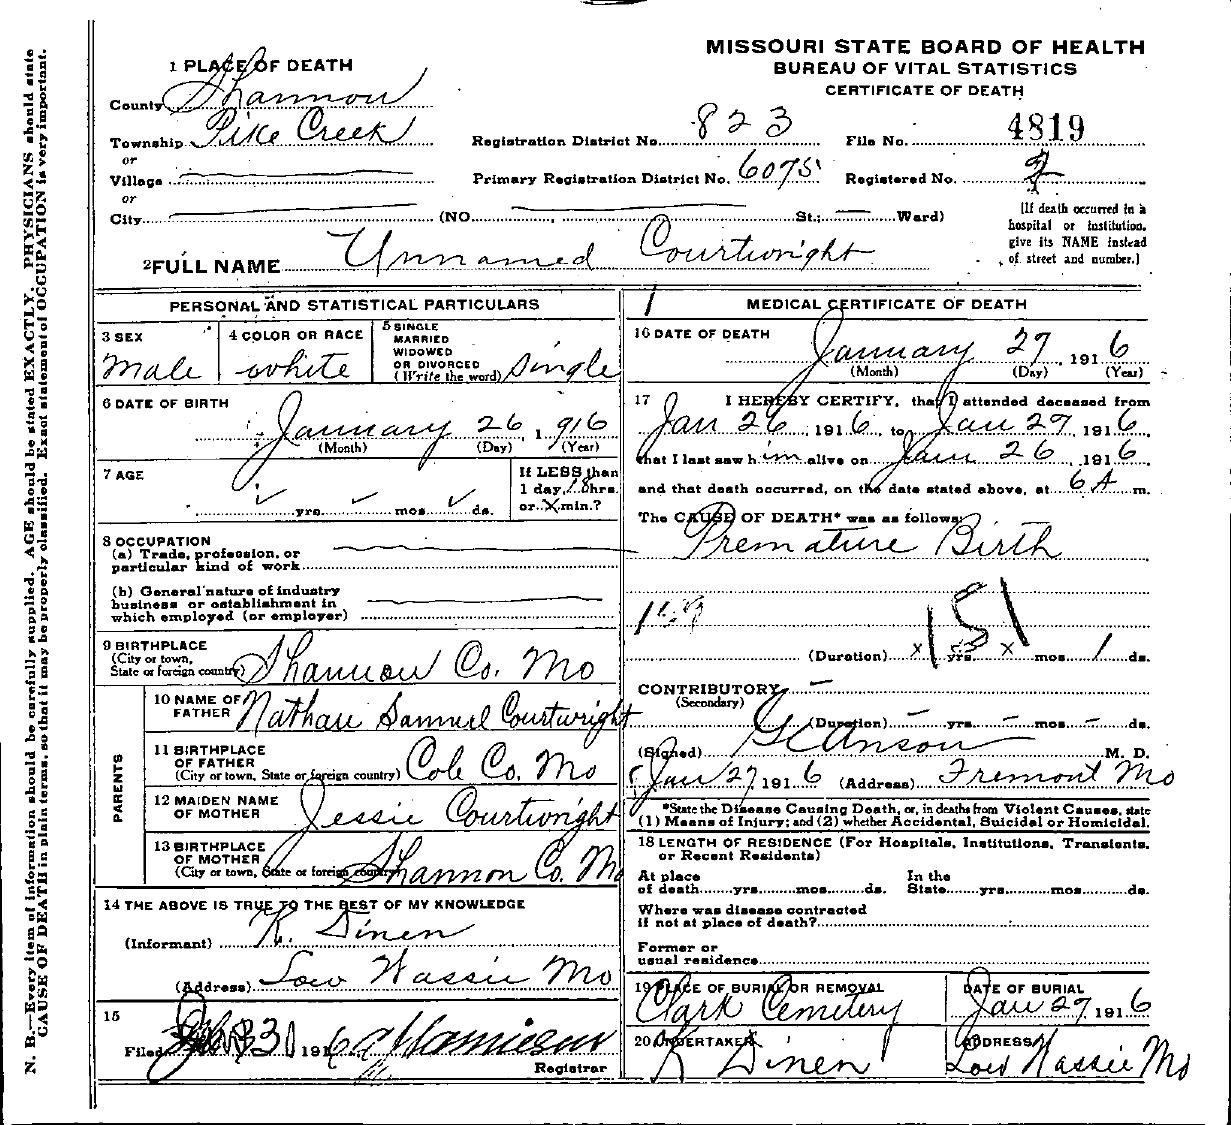 N. B.—Every item of information should be carefully supplied. AGE should be stated EXACTLY. PHYSICIANS should state
CAUSE OF DEATH in plain terms, so that it may be properly classified. Exact statement of OCCUPATION is very important.
MISSOURI STATE BOARD OF HEALTH
BUREAU OF VITAL STATISTICS
CERTIFICATE OF DEATH
1 PLACE OF DEATH
County Shannon
Township Pike Creek
or
Village
or
City (NO. , St.; Ward)
Registration District No. 823 File No. 4819
Primary Registration District No. 6075 Registered No. 2
[If death occurred in a
hospital or institution,
give its NAME instead
of street and number.]
2 FULL NAME Unnamed Courtwright
PERSONAL AND STATISTICAL PARTICULARS
3 SEX Male
4 COLOR OR RACE white
5 SINGLE
MARRIED
WIDOWED
OR DIVORCED
(Write the word) Single
6 DATE OF BIRTH
January 26, 1916
(Month) (Day) (Year)
7 AGE
yrs. mos. ds.
If LESS than
1 day, 18 hrs.
or X min.?
8 OCCUPATION
(a) Trade, profession, or
particular kind of work
(b) General nature of industry
business or establishment in
which employed (or employer)
9 BIRTHPLACE
(City or town,
State or foreign country) Shannon Co. Mo
PARENTS
10 NAME OF
FATHER Nathan Samuel Courtwright
11 BIRTHPLACE
OF FATHER
(City or town, State or foreign country) Cole Co. Mo
12 MAIDEN NAME
OF MOTHER Jessie Courtwright
13 BIRTHPLACE
OF MOTHER
(City or town, State or foreign country) Shannon Co. Mo
14 THE ABOVE IS TRUE TO THE BEST OF MY KNOWLEDGE
(Informant) K. Dinen
(Address) Low Wassie Mo
15
Filed 1916
Registrar
MEDICAL CERTIFICATE OF DEATH
16 DATE OF DEATH
January 27, 1916
(Month) (Day) (Year)
17 I HEREBY CERTIFY, that I attended deceased from
Jan 26, 1916, to Jan 27, 1916,
that I last saw him alive on Jan 26, 1916,
and that death occurred, on the date stated above, at 6 A m.
The CAUSE OF DEATH* was as follows:
Premature Birth
151
(Duration) x yrs. x mos. 1 ds.
CONTRIBUTORY
(Secondary)
(Duration) – yrs. – mos. – ds.
(Signed) M. D.
Jan 27, 1916 (Address) Fremont Mo
*State the Disease Causing Death, or, in deaths from Violent Causes, state
(1) Means of Injury; and (2) whether Accidental, Suicidal or Homicidal.
18 LENGTH OF RESIDENCE (For Hospitals, Institutions, Transients,
or Recent Residents)
At place
of death yrs. mos. ds.
In the
State yrs. mos. ds.
Where was disease contracted
if not at place of death?
Former or
usual residence
19 PLACE OF BURIAL OR REMOVAL
Clark Cemetery
DATE OF BURIAL
Jan 27, 1916
20 UNDERTAKER
K Dinen
ADDRESS
Low Wassie Mo